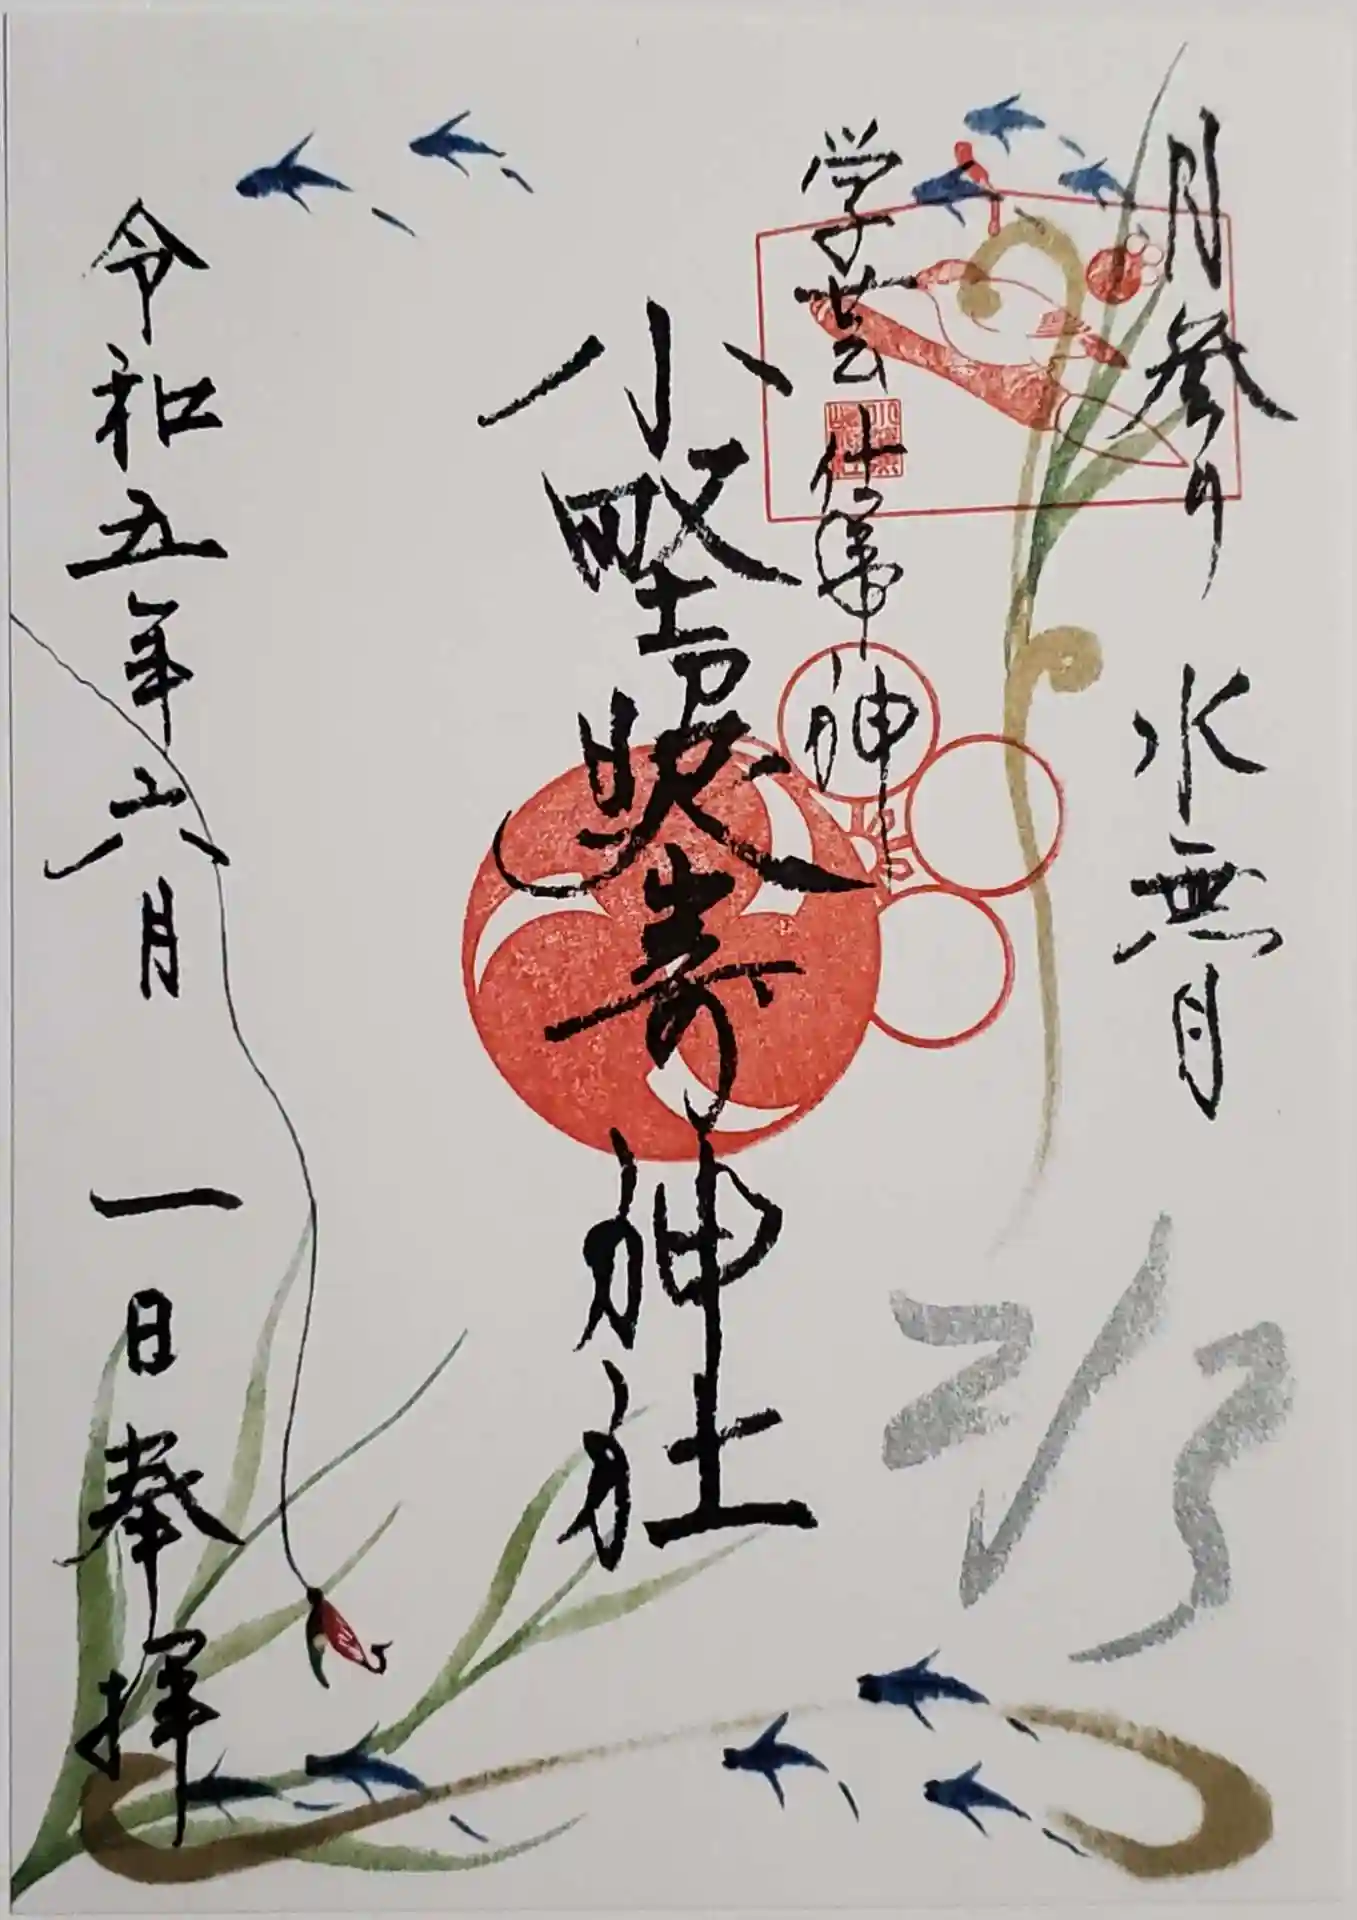 月参り 水無月
学芸 仕事神
小野照崎神社
令和五年六月 一日奉拝